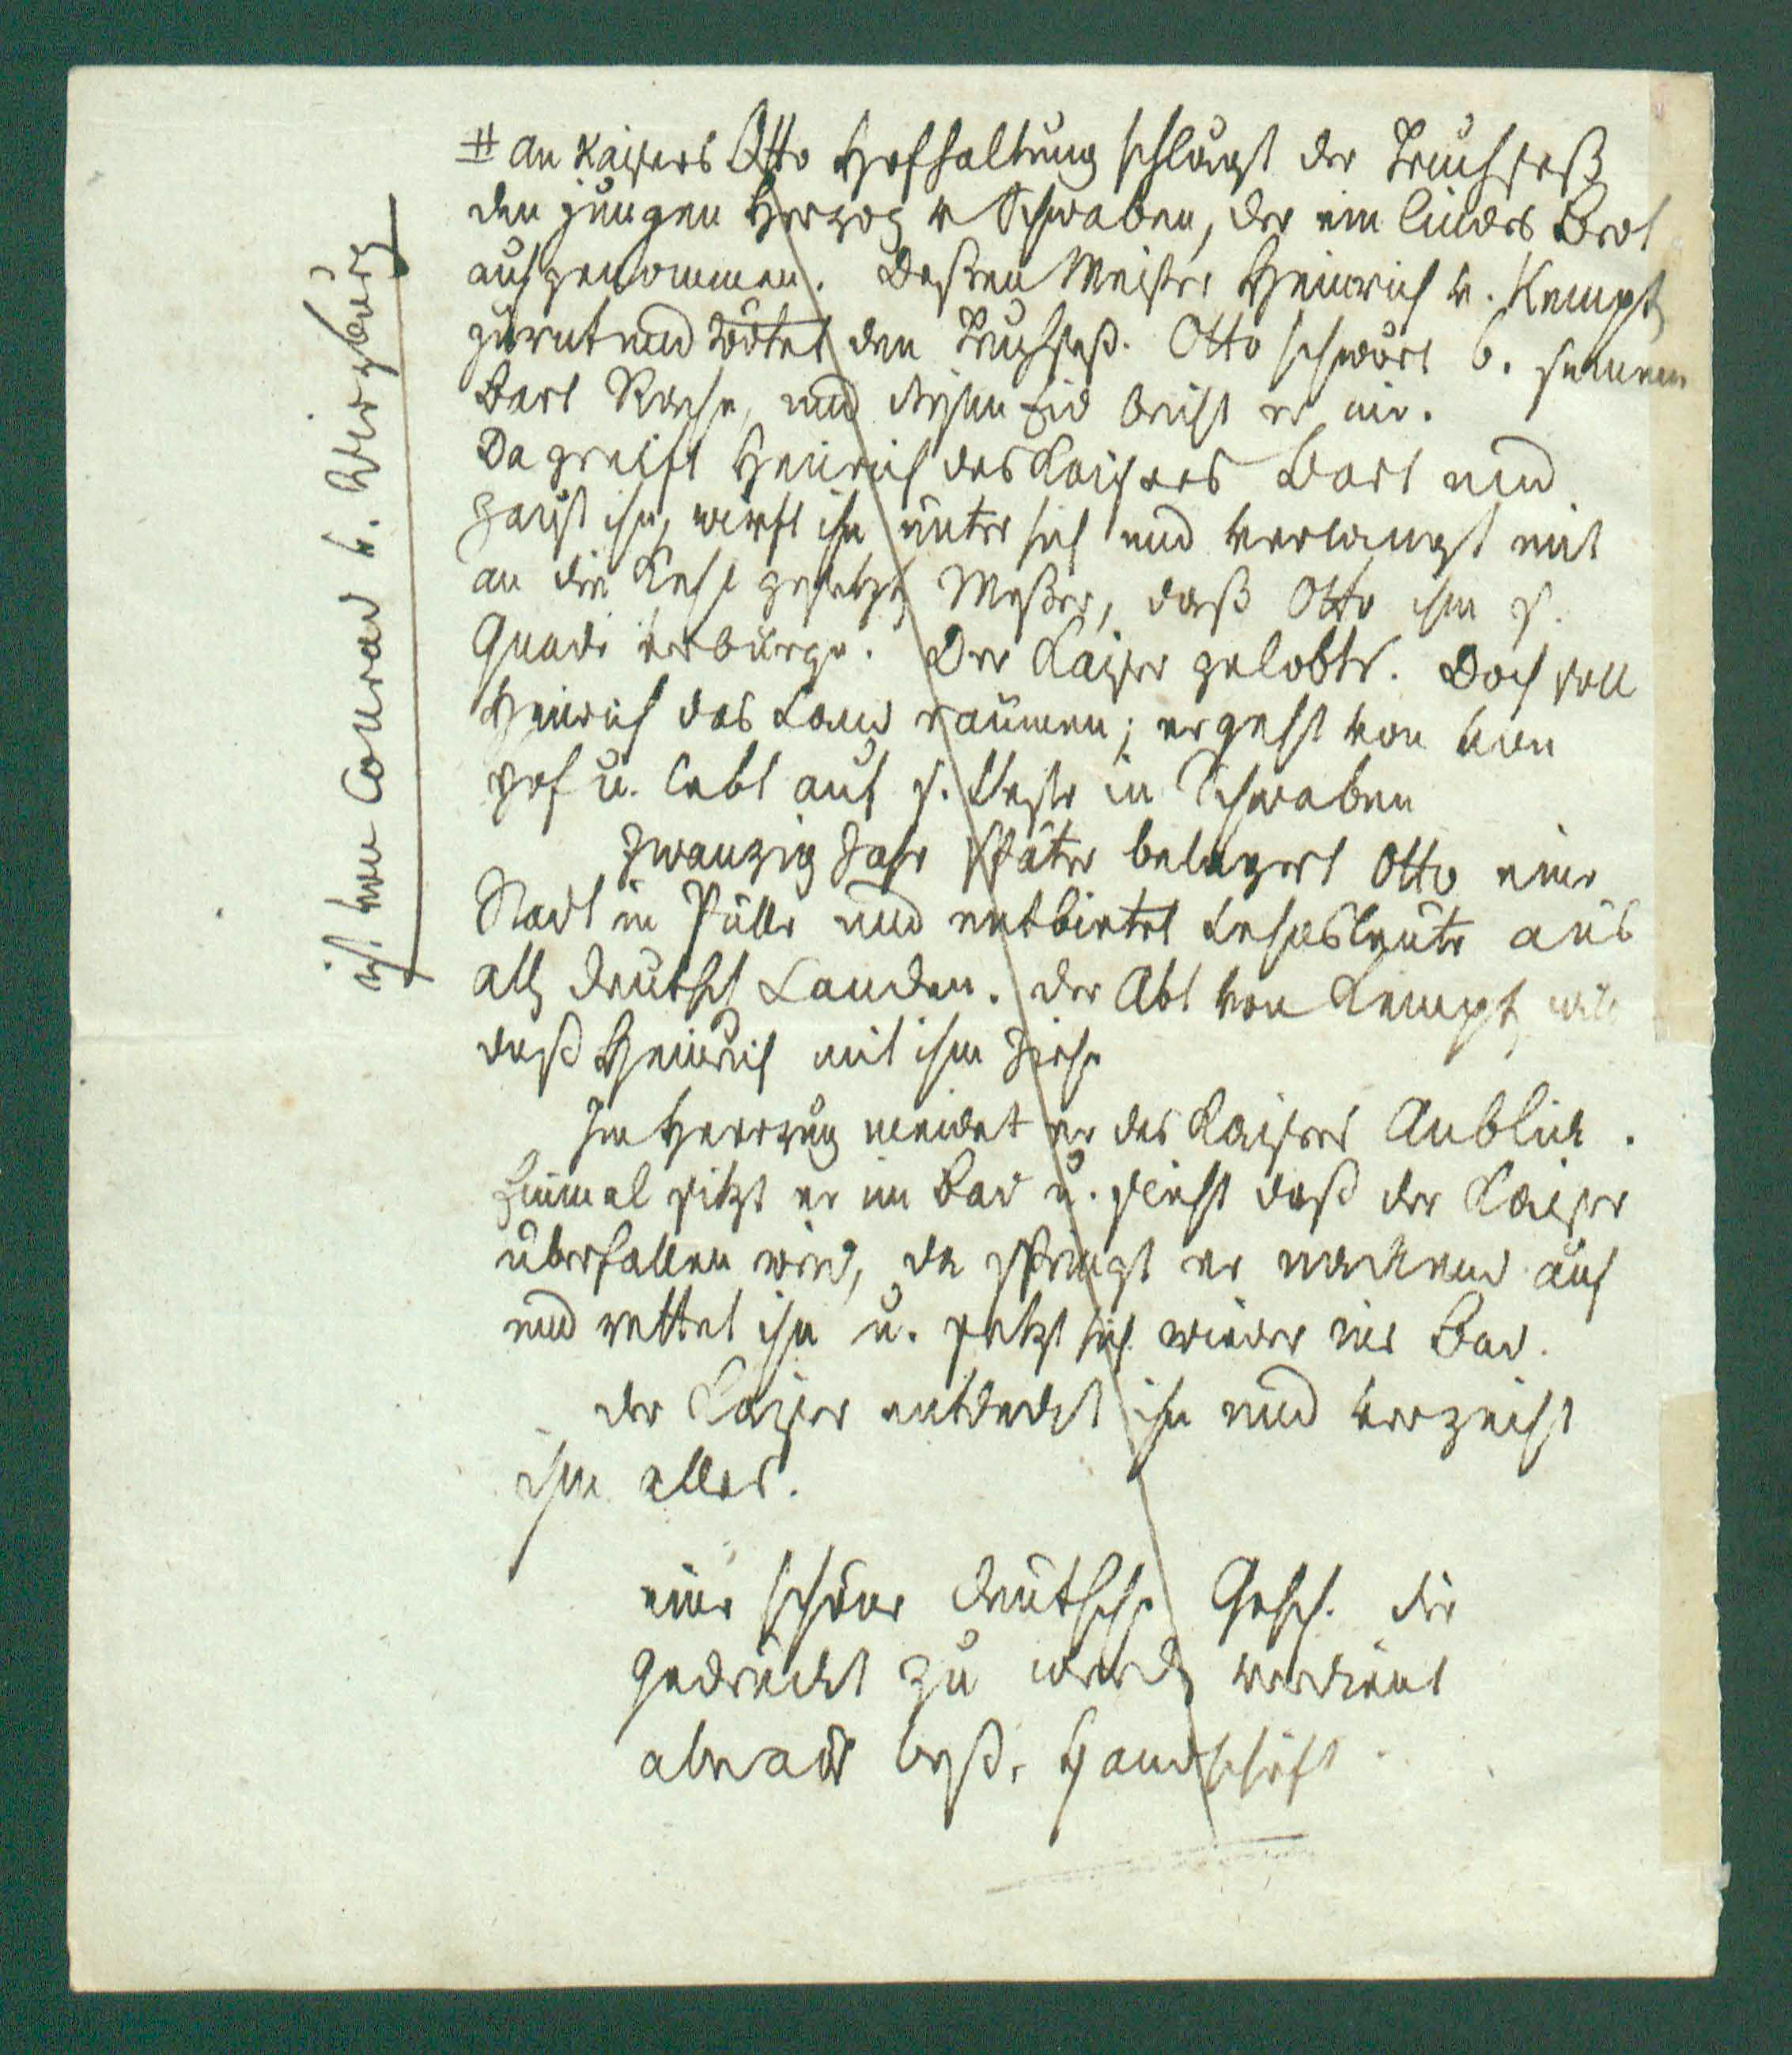 # an Kaisers Otto Hofhaltung schlägt der Truchseß
den jungen Herzog v Schwaben, der ein lindes Brot
aufgenommen. Deßen Meister Heinrich v. Kempt
zürnt und tödtet den Truchseß. Otto schwört b. seinem
Bart Rache, und diesen Eid bricht er nie.
Da greift Heinrich des Kaisers Bart und
zaust ihn, wirft ihn unter sich und verlangt mit
an die Kehle gesetzt Meßer, daß Otto ihm s.
Gnade verbürge. Der Kaiser gelobts. Doch soll
Heinrich das Land räumen; er geht von
Hof u. lebt auf s. Veste in Schwaben
Zwanzig Jahr später belagert Otto eine
Stadt in Pülle und entbietet Lehnsleute aus
all deutsch Landen. der Abt von Kempt will
daß Heinrich mit ihm ziehe
Im Heerzug meidet er des Kaisers Anblick.
Einmal sitzt er im Bad u. sieht daß der Kaiser
überfallen wird, da springt er nackend auf
und rettet ihn u. setzt sich wieder ins Bad.
der Kaiser entdeckt ihn und verzeiht
ihm alles.
eine schöne deutsche Gesch. die
gedruckt zu werd verdient
aber aus beß. Handschrift
ist von Conrad v. Wirzburg